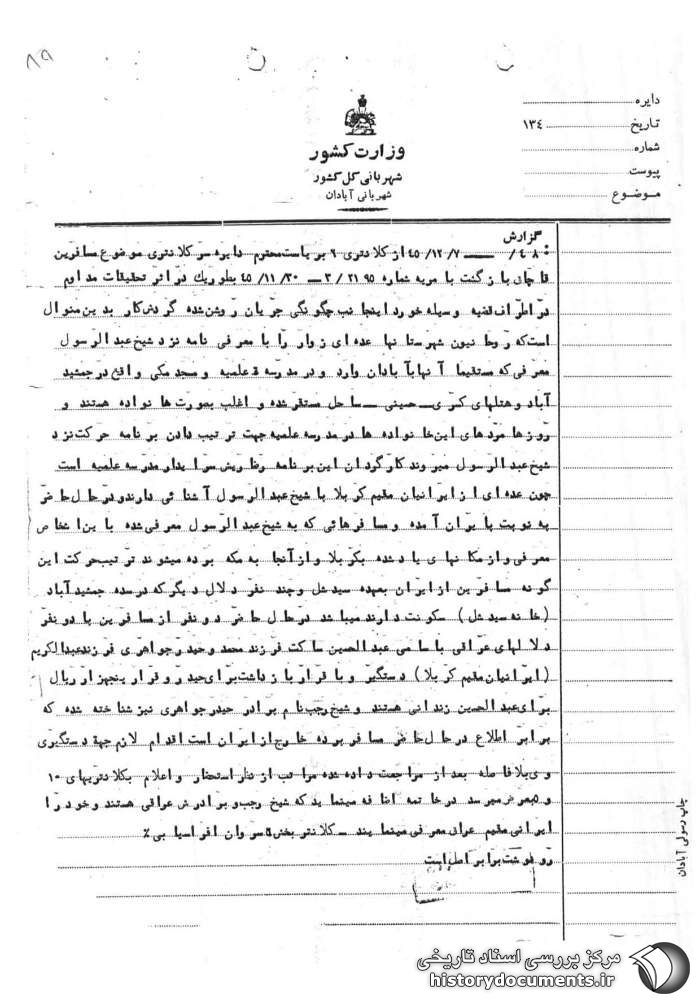 ۸۹
دایره
تاریخ ۱۳۴
شماره
پیوست
موضوع
وزارت کشور
شهربانی کل کشور
شهربانی آبادان
گزارش
۴۰۸ / ۴۵/۱۲/۷ از کلانتری ۹ بریاست محترم دایره سرکلانتری موضوع مسافرین
قاچاق بازگشت با مریه شماره ۲۱۹۵/۳ــ ۴۵/۱۱/۳۰ بطوریکه در اثر تحقیقات مداوم
در اطراف قضیه وسیله خود اینجانب چگونگی جریان روشن شده گردش کار بدین منوال
است که روحانیون شهرستانها عده ای زوار را با معرفی نامه نزد شیخ عبدالرسول
معرفی که مستقیما آنها بآبادان وارد و در مدرسه علمیه و مسجد مکی واقع در جمشید
آباد و هتلهای کسری ــ حسینی ــ ساحل مستقر شده و اغلب بصورت خانواده هستند و
روزها مردهای این خانواده ها در مدرسه علمیه جهت ترتیب دادن برنامه حرکت نزد
شیخ عبدالرسول میروند کارگردان این برنامه سرایدار مدرسه علمیه است
چون عده ای از ایرانیان مقیم کربلا با شیخ عبدالرسول آشنائی دارند و در حال حاضر
به نوبت بایران آمده و مسافرهائی که به شیخ عبدالرسول معرفی شده باین اشخاص
معرفی و از مکانهای یاد شده بکربلا و از آنجا به مکه برده میشوند ترتیب حرکت این
گونه مسافرین از ایران بعهده سید و چند نفر دلال دیگر که در سده جمشید آباد
(خانه سید) سکونت دارند میباشد در حال حاضر دو نفر از مسافرین با دو نفر
دلالهای عراقی باسامی عبدالحسین ساکت فرزند محمد و حیدر جواهری فرزند عبدالکریم
(ایرانیان مقیم کربلا) دستگیر و با قرار بازداشت برای حیدر و قرار پنجهزار ریال
برای عبدالحسین زندانی هستند و شیخ رجب نام برادر حیدر جواهری نیز شناخته شده که
برابر اطلاع در حال حاضر مسافر برده خارج از ایران است اقدام لازم جهة دستگیری
وی بلافاصله بعد از مراجعت داده شده مراتب از نظر استحضار و اعلام بکلانتریهای ۱۰
و معرض میرسد در خاتمه اضافه مینماید که شیخ رجب و برادرش عراقی هستند و خود را
ایرانی مقیم عراق معرفی مینمایند ــ کلانتر بخش ۹ سروان افراسیابی ٪
رونوشت برابر اصل است
چاپ رسولی آبادان
مرکز بررسی اسناد تاریخی
historydocuments.ir